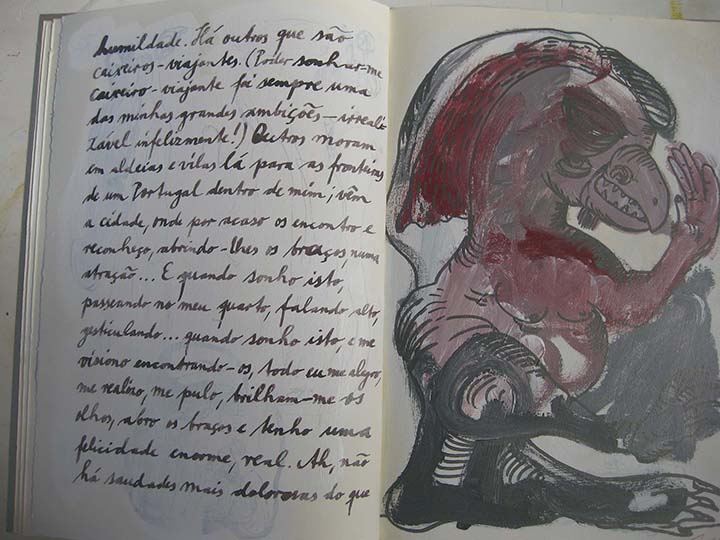 humildade. Há outros que são
caixeiros-viajantes. (Poder sonhar-me
caixeiro-viajante foi sempre uma
das minhas grandes ambições – irreali
zável infelizmente!) Outros moram
em aldeias e vilas lá para as fronteiras
de um Portugal dentro de mim; vêm
a cidade, onde por acaso os encontro e
reconheço, abrindo-lhes os braços, numa
atração... E quando sonho isto,
passeando no meu quarto, falando alto,
gesticulando... quando sonho isto, e me
visiono encontrando-os, todo eu me alegro,
me realizo, me pulo, brilham-me os
olhos, abro os braços e tenho uma
felicidade enorme, real. Ah, não
há saudades mais dolorosas do que